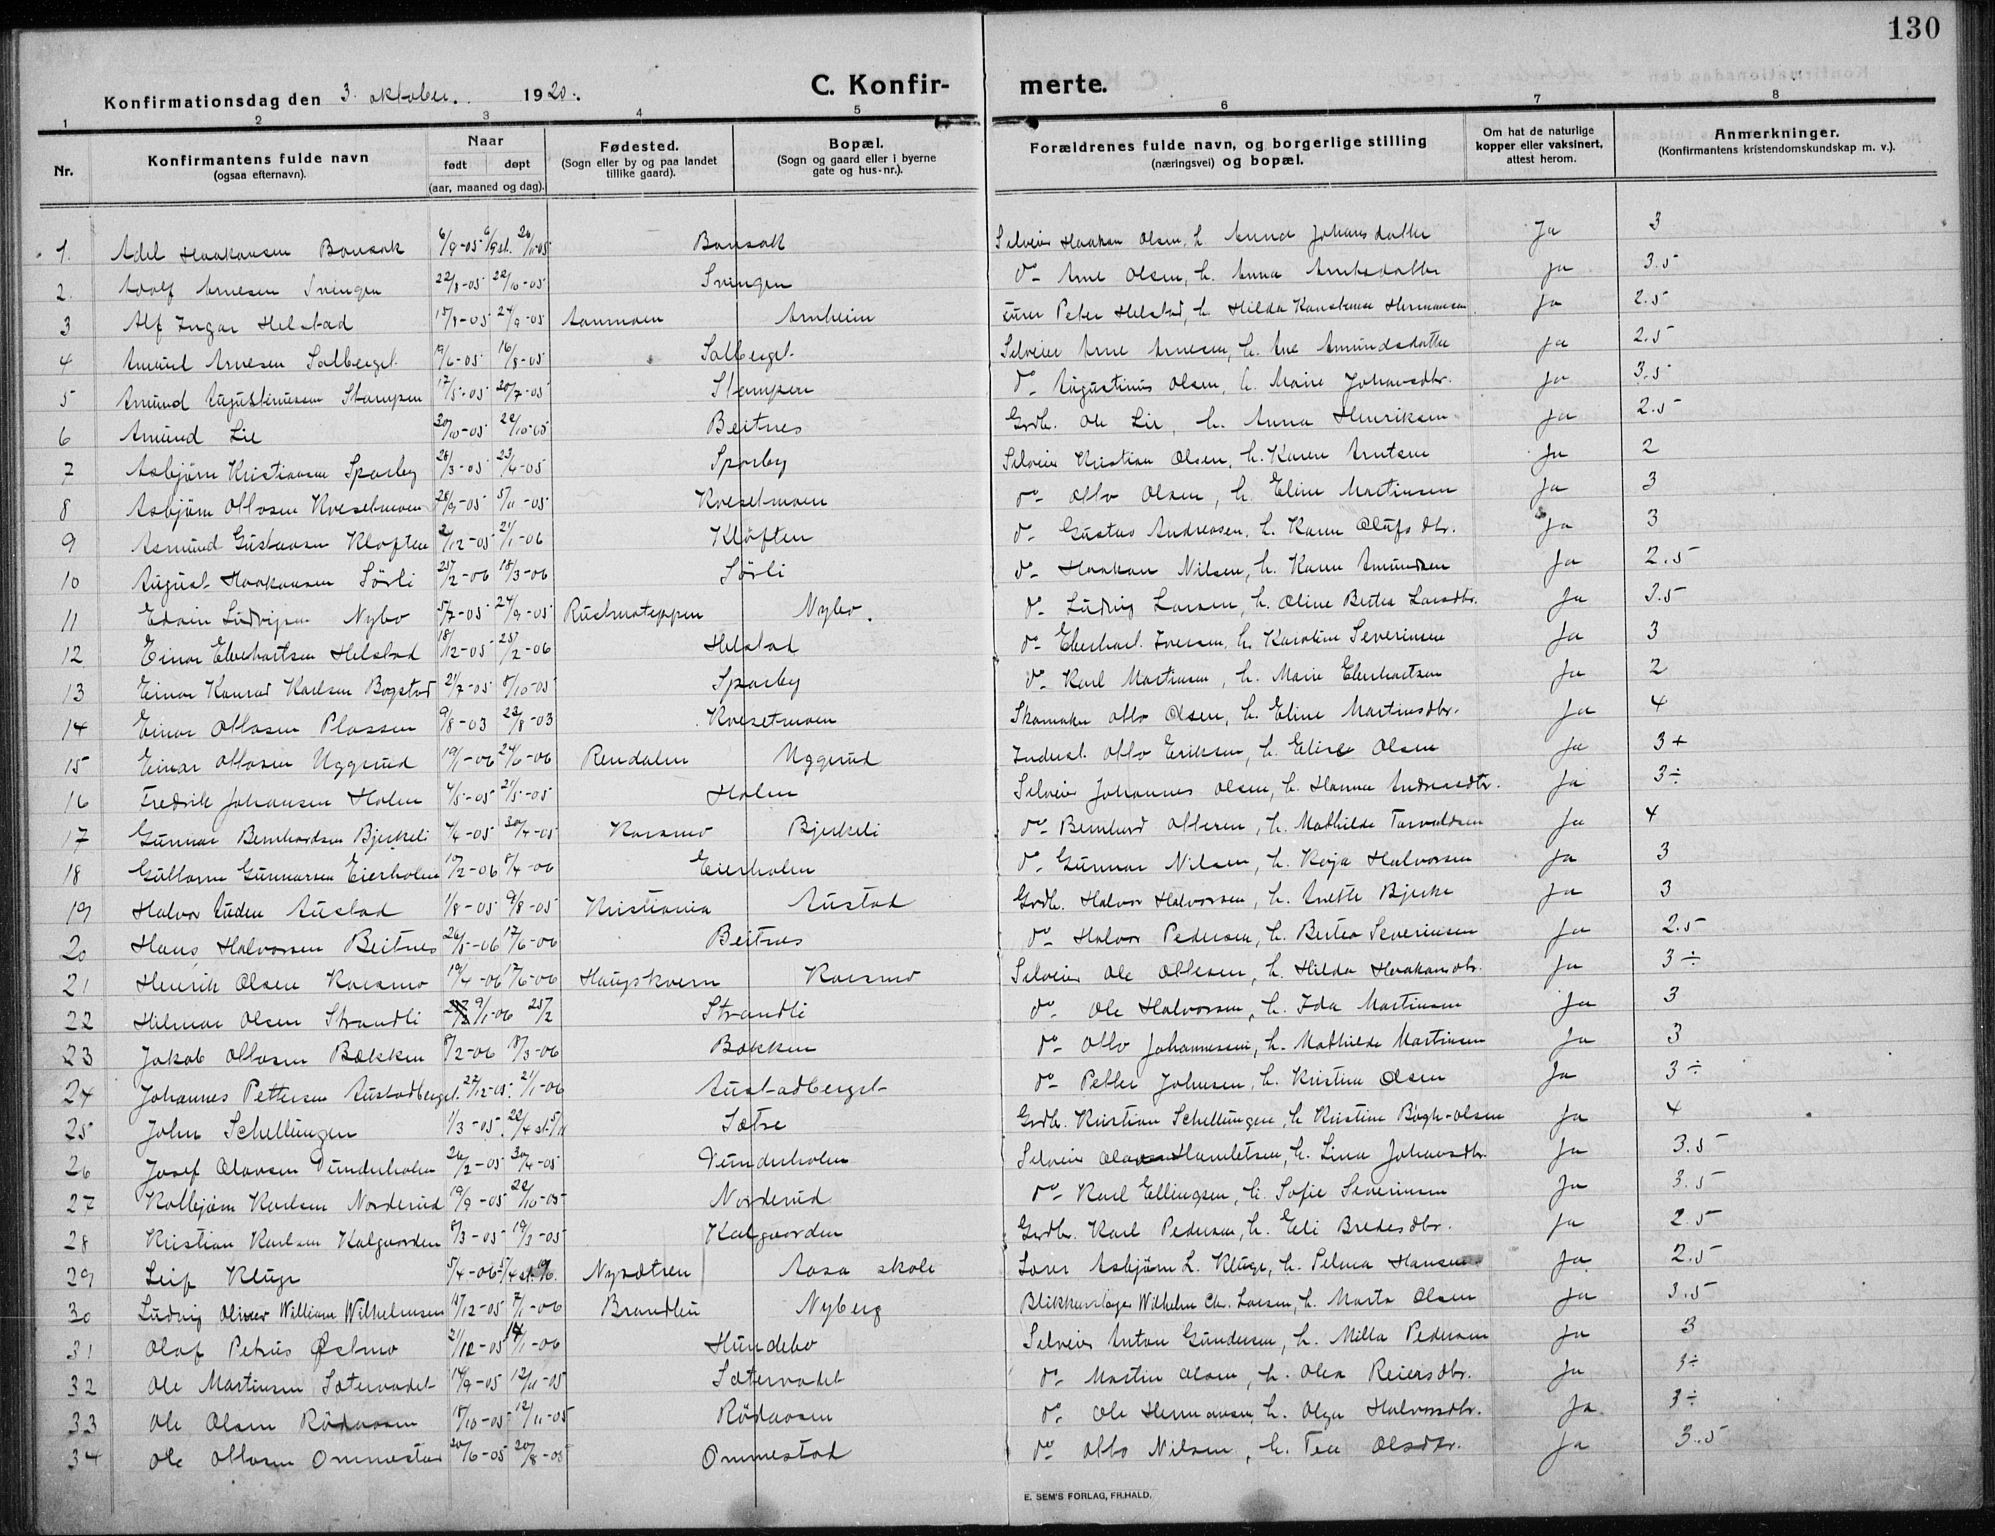 130
Konfirmationsdag den 3. oktober. 1920.
C. Konfirmerte.
1 2 3 4 5 6 7 8
Nr.
Konfirmantens fulde navn
(ogsaa efternavn).
Naar
født døpt
(aar, maaned og dag).
Fødested.
(Sogn eller by og paa landet
tillike gaard).
Bopæl.
(Sogn og gaard eller i byerne
gate og hus-nr.).
Forældrenes fulde navn, og borgerlige stilling
(næringsvei) og bopæl.
Om hat de naturlige
kopper eller vaksinert,
attest herom.
Anmerkninger.
(Konfirmantens kristendomskundskap m. v.).
1. Adel Haakonsen Bonsak 6/9-05 6/9 st. 26/11-05 Bonsak Selveier Haakon Olsen, h. Anna Johansdatter Ja 3
2. Adolf Arnesen Svingen 22/8-05 22/10-05 Svingen do- Arne Olsen, h. Anna Ja 3.5
3 Alf Ingar Helstad 15/8-05 24/9-05 Aanmoen Arnheim Peter Helstad, h. Hilda Konstanse Hermansen Ja 2.5
4 Amund Arnesen Solberget 19/6-05 16/8-05 Solberget Selveier Arne Arnesen, h. Ane Amundsdatter Ja 2.5
5 Amund Augustinussen Stampen 17/5-05 20/7-05 Stampen do- Augustinus Olsen, h. Marie Johansdtr. Ja 3.5
6 Amund Lie 30/10-05 22/10-05 Beitnes Grdb. Ole Lie, h. Anna Henriksen Ja 2.5
7 Asbjørn Kristiansen Sparby 26/3-05 23/4-05 Sparby Selveier Kristian Olsen, h. Karen Arntsen Ja 2
8 Asbjørn Ottosen Kvesetmoen 28/9-05 5/11-05 Kvesetmoen do- Otto Olsen, h. Eline Martinsen Ja 3
9 Asmund Gustavsen Kløften 2/12-05 21/1-06 Kløften do- Gustav Andreasen, h. Karen Olufsdtr. Ja 3
10 August Haakonsen Sørli 25/2-06 18/3-06 Sørli do- Haakon Nilsen, h. Karen Amundsen Ja 2.5
11 Edvin Ludvigsen Nybo 5/7-05 24/9-05 Rustmoteppen Nybo. do- Ludvig Larsen, h. Oline Betea Larsdtr. Ja 3.5
12 Einar Eberhartsen Helstad 18/12-05 25/2-06 Helstad do- Eberhart Iversen, h. Karoline Severinsen Ja 3
13 Einar Konrad Karlsen Bogstad 21/7-05 8/10-05 Sparby do- Karl Martinsen, h. Marie Eberhartsen Ja 2
14 Einar Ottosen Plassen 9/8-03 23/8-03 Kvesetmoen Skomaker Otto Olsen, h. Eline Martinsdtr. Ja 4
15 Einar Ottosen Uggerud 19/1-06 24/6-06 Rendalen Uggerud Inderst. Otto Eriksen, h. Elise Olsen Ja 3+
16 Fredrik Johansen Holen 4/5-05 21/5-05 Holen Selveier Johannes Olsen, h. Hanna Andreasdtr. Ja 3÷
17 Gunnar Bernhardsen Bjerkeli 4/6-05 30/4-05 Korsmo Bjerkeli do- Bernhard Ottesen, h. Mathilde Torvaldsen Ja 4
18 Guttorm Gunnarsen Eierholen 10/2-06 8/4-06 Eierholen do- Gunnar Nilsen, h. Kaja Halvorsen Ja 3
19 Halvor Auden Austad 1/8-05 9/8-05 Kristiania Austad Grdb. Halvor Halvorsen, h. Anette Bjerke Ja 3
20 Hans Halvorsen Beitnes 26/5-06 17/6-06 Beitnes do- Halvor Pedersen, h. Betea Severinsen Ja 2.5
21 Henrik Olsen Korsmo 19/4-06 17/6-06 Haugskvern Korsmo Selveier Ole Ottesen, h. Hilda Haakonsdtr. Ja 3÷
22 Hilmar Olsen Strandli 9/1-06 25/2 Strandli do- Ole Halvorsen, h. Ida Martinsen Ja 3
23 Jakob Ottosen Bækken 8/2-06 18/3-06 Bækken do- Otto Johannesen, h. Mathilde Martinsen Ja 3
24 Johannes Pettersen Austadberget. 22/12-05. 21/1-06 Austadberget do- Petter Johnsen, h. Kristine Olsen Ja 3÷
25 John Schellungen 1/3-05. 22/4 st. 5/11 Sætre Grdb. Kristian Schellungen, h. Kristine Bøgh-Olsen Ja 4
26 Josef Olavsen Tunderholen 26/2-05 30/4-05 Tunderholen Selveier Olav Hambetsen, h. Lina Johansdtr. Ja 3.5
27 Kolbjørn Karlsen Norderud 19/9-05 22/10-05 Norderud do- Karl Ellingsen, h. Sofie Severinsen Ja 3.5
28 Kristian Karlsen Kalgaarden 8/3-05 19/3-05 Kalgaarden Grdb. Karl Pedersen, h. Eli Bredesdtr. Ja 2.5
29 Leif Kluge 5/4-06 Nysætren Aasa skole Lærer Asbjørn L. Kluge, h. Petra Hansen Ja 2.5
30 Ludvig Oliver William Wilhelmsen 14/12-05 7/1-06 Brandlien Nyberg Blikkenslager Wilhelm Chr. Larsen, h. Marta Olsen Ja 3.5
31 Olaf Petrus Østmo 21/12-05 14/1-06 Hundebo Selveier Anton Gundersen, h. Milla Pedersen Ja 3
32 Ole Martinsen Sætervadet 14/9-05 12/11-05 Sætervadet do- Martin Olsen, h. Olea Reiersdtr. Ja 3÷
33 Ole Olsen Rødaasen 18/10-05 12/11-05 Rødaasen do- Ole Hermansen, h. Olga Halvorsdtr. Ja 3÷
34 Ole Ottosen Ommestad 20/6-05 20/8-05 Ommestad do- Otto Nilsen, h. Tea Olsdtr. Ja 3.5
E. SEM'S FORLAG, FR.HALD.